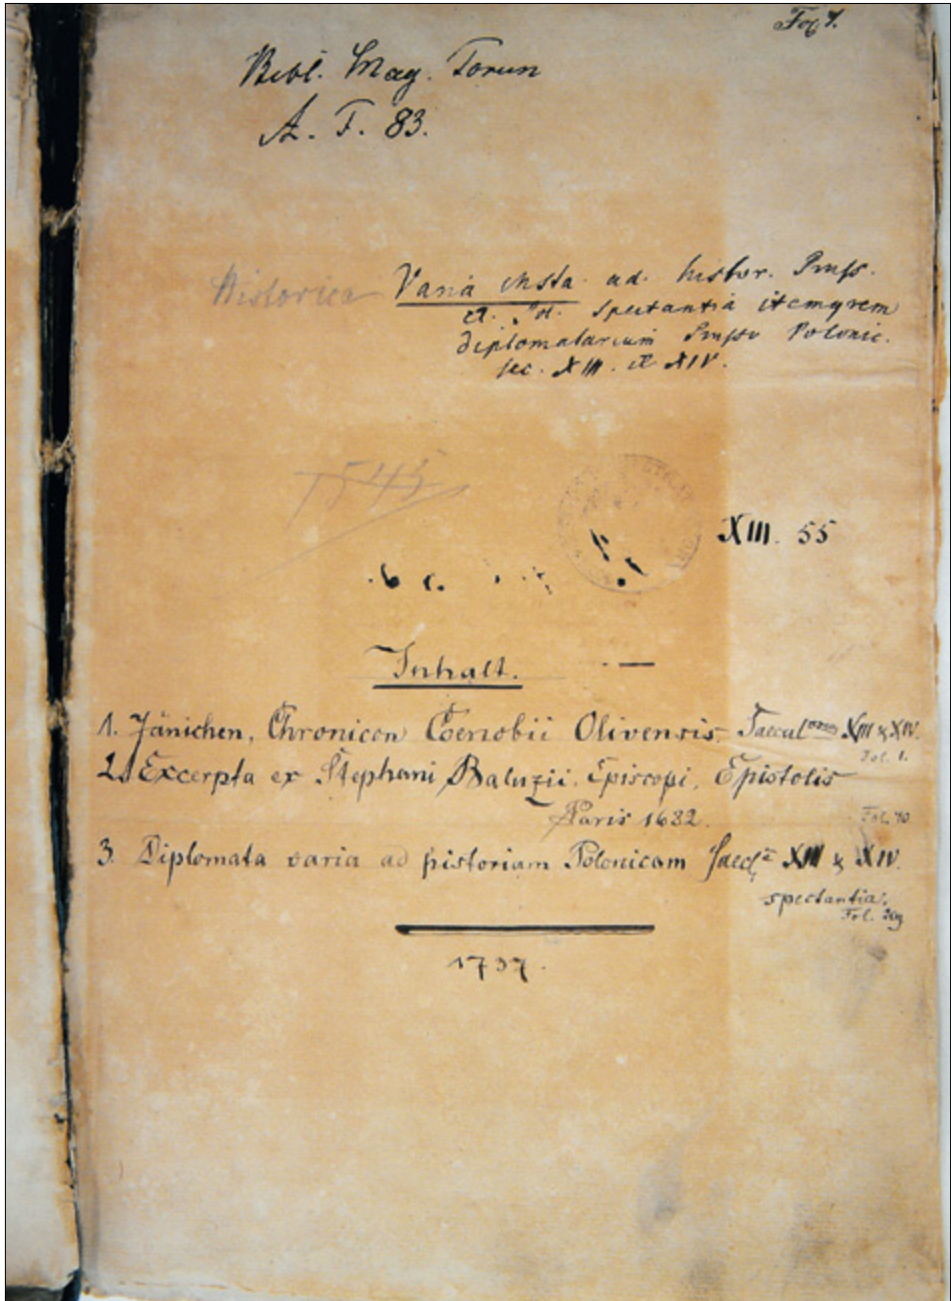 Bibl. Mag. Torun
A. F. 83.
Historica
Varia Msta. ad. histor. Pruss.
et. Pol. spectantia itemqrem
diplomatarium Prusso Polonic.
sec. XIII. et XIV.
XIII. 55
Inhalt.
1. Jänichen, Chronicon Coenobii Olivensis. Saeculorum XIII & XIV.
Fol. 1.
2. Excerpta ex Stephani Baluzii. Episcopi, Epistolis
Paris 1682.
Fol. 70
3. Diplomata varia ad historiam Polonicam Saecl XIII & XIV.
spectantia.
Fol.
1737.